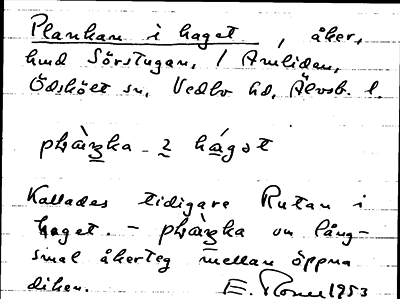 Plankan i haget, åker,
hmd Sörstugan, 1 Amliden,
Ödsköt sn, Vedbo hd, Älvsb. l.
hágət
Kallades tidigare Rutan i
haget. - om lång-
smal åkerteg mellan öppna
diken. E. 1953